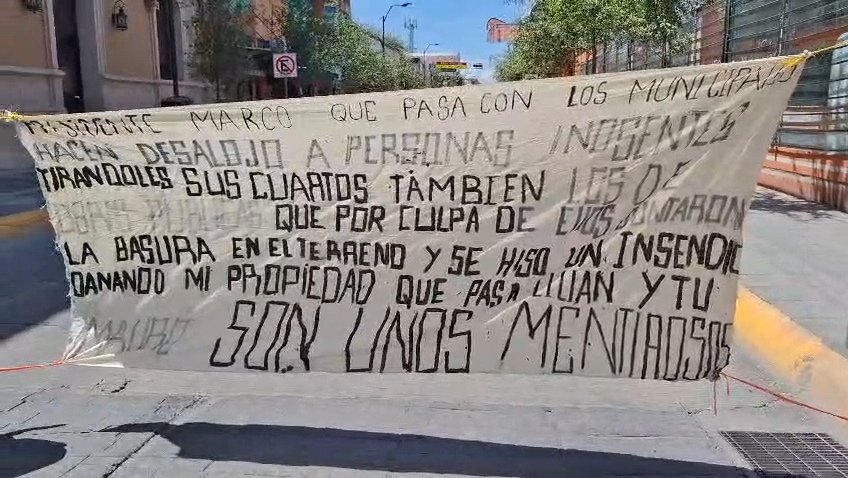 PRESIDENTE MARCO QUE PASA CON LOS MUNICIPALES
HACEN DESALOJO A PERSONAS INOSENTES
TIRANDOLES SUS CUARTOS TAMBIEN LOS DE
OBRAS PUBLICAS QUE POR CULPA DE EYOS JUNTARON
LA BASURA EN EL TERRENO Y SE HISO UN INSENDIO
DANANDO MI PROPIEDAD QUE PASA LILIAN Y TU
SON UNOS MENTIROSOS